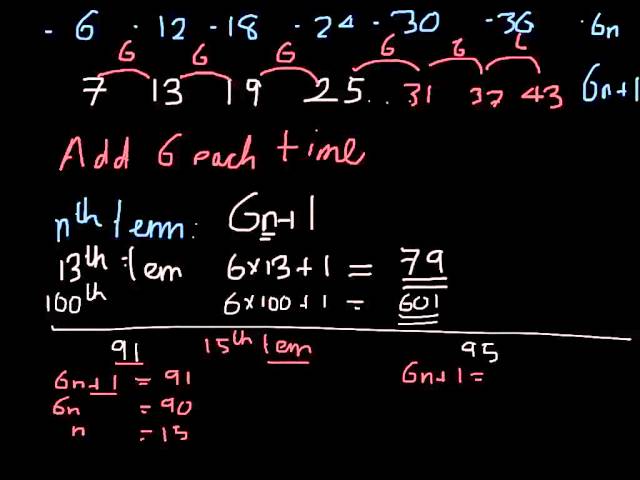 - 6 - 12 - 18 - 24 - 30 - 36 6n
6 6 6 6 6 6
7 13 19 25... 31 37 43 6n+1
Add 6 each time
nth term: 6n+1
13th term 6×13+1 = 79
100th 6×100+1 = 601
91 15th term 95
6n+1 = 91 6n+1 =
6n = 90
n = 15